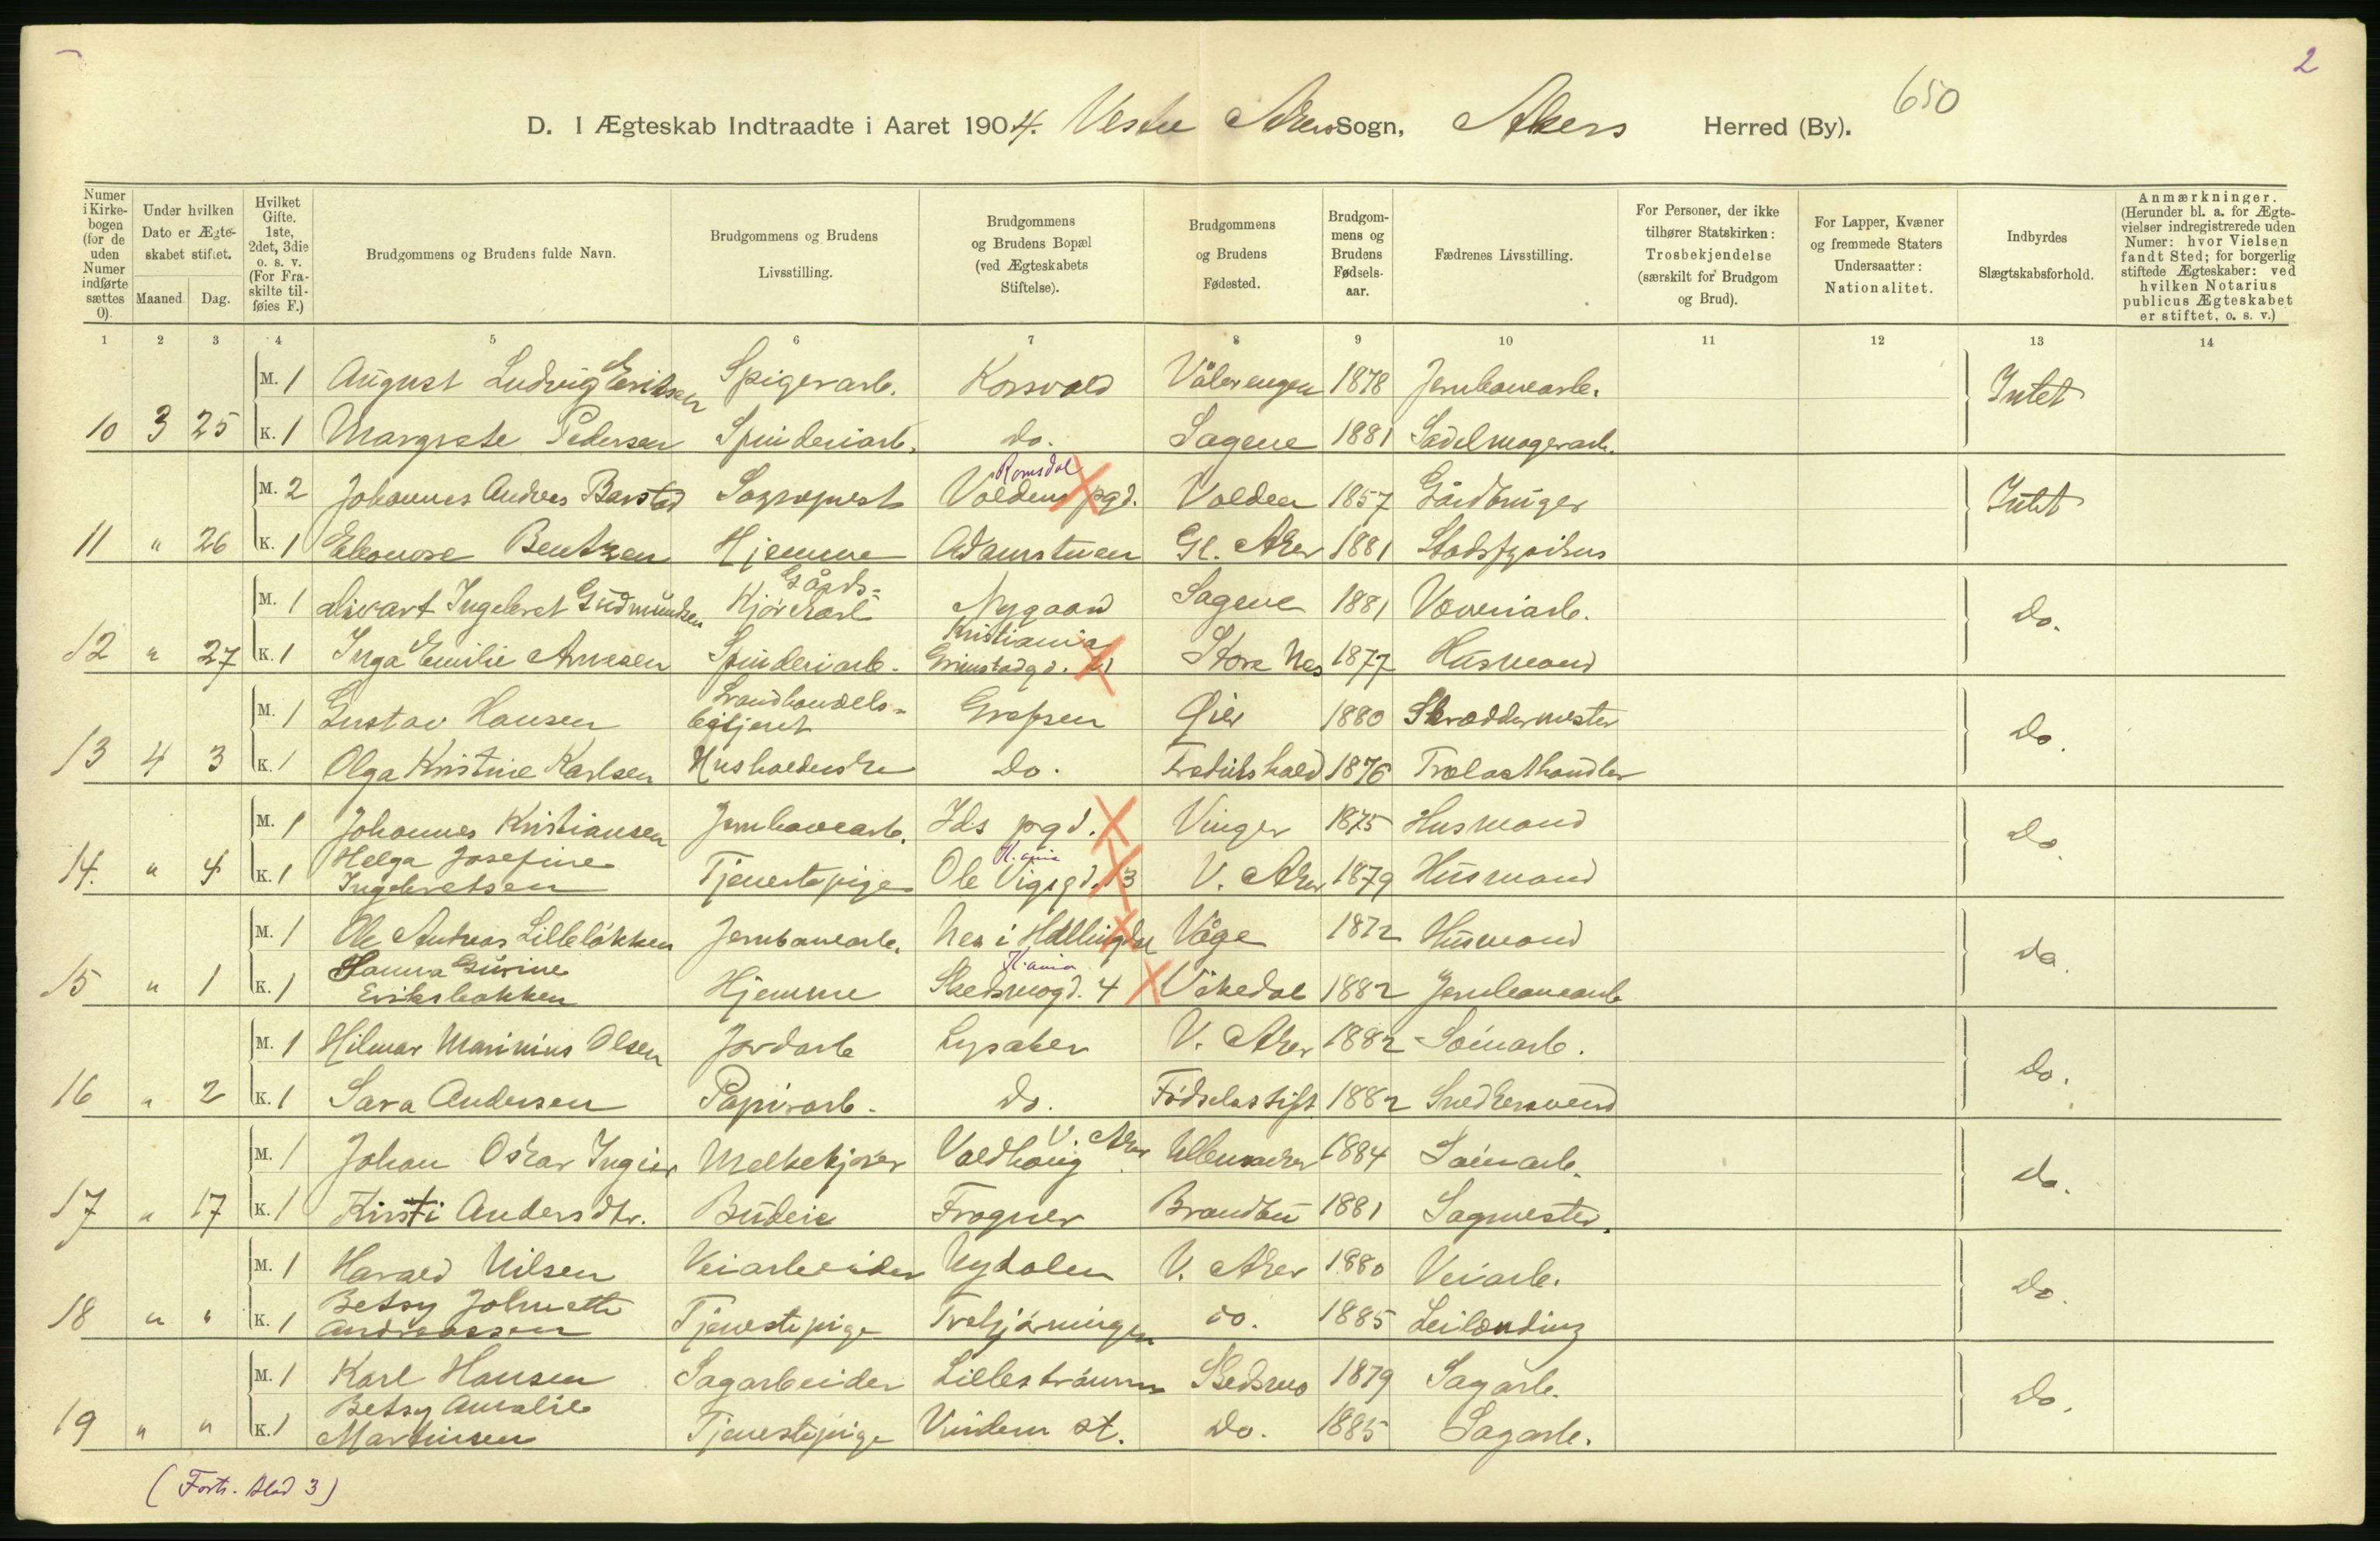 2
650
D. I Ægteskab Indtraadte i Aaret 1904. Vestre Akers Sogn, Akers Herred (By).
Numer i Kirke-bogen (for de uden Numer indførte sættes 0).
Under hvilken Dato er Ægte-skabet stiftet.
Maaned. Dag.
Hvilket Gifte. 1ste, 2det, 3die o. s. v. (For Fra-skilte til-føies F.)
Brudgommens og Brudens fulde Navn.
Brudgommens og Brudens Livsstilling.
Brudgommens og Brudens Bopæl (ved Ægteskabets Stiftelse).
Brudgommens og Brudens Fødested.
Brudgom-mens og Brudens Fødsels-aar.
Fædrenes Livsstilling.
For Personer, der ikke tilhører Statskirken: Trosbekjendelse (særskilt for Brudgom og Brud).
For Lapper, Kvæner og fremmede Staters Undersaatter: Nationalitet.
Indbyrdes Slægtskabsforhold.
Anmærkninger. (Herunder bl. a. for Ægte-vielser indregistrerede uden Numer: hvor Vielsen fandt Sted; for borgerlig stiftede Ægteskaber: ved hvilken Notarius publicus Ægteskabet er stiftet, o. s. v.)
1 2 3 4 5 6 7 8 9 10 11 12 13 14
M. 1 August Ludvig Eriksen Spigerarb. Korsvold Vålerengen 1878 Jernbanearb. Intet
10 3 25 K. 1 Margrete Pedersen Spinderiarb. do. Sagene 1881 Sadelmagerarb.
Romsdal
M. 2 Johannes Andreas Barstad Sogneprest Voldens pgd. Volden 1857 Gårdbruger Intet
11 " 26 K. 1 Eleonore Bentzen Hjemme Adamstuen Gl. Aker 1881 Stadsfysikus
Gårds-
M. 1 Sivart Ingebret Gudmundsen Kjørekarl Nygaard Sagene 1881 Væveriarb. do.
Kristiania
12 " 27 K. 1 Inga Emilie Arnesen Spinderiarb. Grimstadgd. Store Nes 1877 Husmand
Landhandels-
M. 1 Gustav Hansen betjent Grefsen Øier 1880 Skræddermester do.
13 4 3 K. 1 Olga Kristine Karlsen Husholderske do. Fredrikshald 1876 Trælasthandler
M. 1 Johannes Kristiansen Jernbanearb. Ids pgd. Vinger 1875 Husmand do.
Helga Josefine K.ania
14. " 4 K. 1 Ingebretsen Tjenestepige Ole Vigsgd. 13 V. Aker 1879 Husmand
M. 1 Ole Andreas Lilleløkken Jernbanearb. Nes i Hallingdal Våge 1872 Husmand do.
Hanna Gurine K.ania
15 " 1 K. 1 Eriksbakken Hjemme Skedsmogd. 4 Våkedal 1882 Jernbanearb
M. 1 Hilmar Marinius Olsen Jordarb Lysaker V. Aker 1882 do.
16 " 2 K. 1 Sara Andersen Papirarb. do. Fødselsstift 1882 Snedkersvend
V. Aker
M. 1 Johan Oskar Ingier Melkekjører Voldhoug Ullensaker 1884 do.
17 " 17 K. 1 Kirsti Andersdtr. Budeie Frogner Brandbu 1881 Sagmester.
M. 1 Harald Nilsen Veiarbeider Nydalen V. Aker 1880 Veiarb. do.
Betsy Johnette
18 " " K. 1 Andreassen Tjenestepige do. 1885 Leilænding
M. 1 Karl Hansen Sagarbeider Lillestrømm Skedsmo 1879 Sagarb. do.
Betsy Amalie
19 " " K. 1 Martinsen Tjenestepige Vindern st. do. 1885 Sagarb.
(Forts. blad 3)